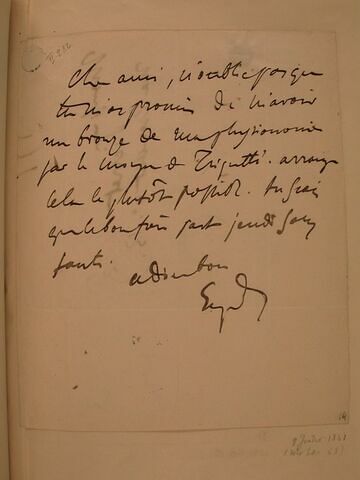 Cher ami, n'oublie pas que
tu m'as promis de m'avoir
un bronze de ma physionomie
par le moyen de Triquetti. arrange
cela le plutôt possible. tu sais
que le bon frère part jeudi sans
faute.
adieu bon
Eug D